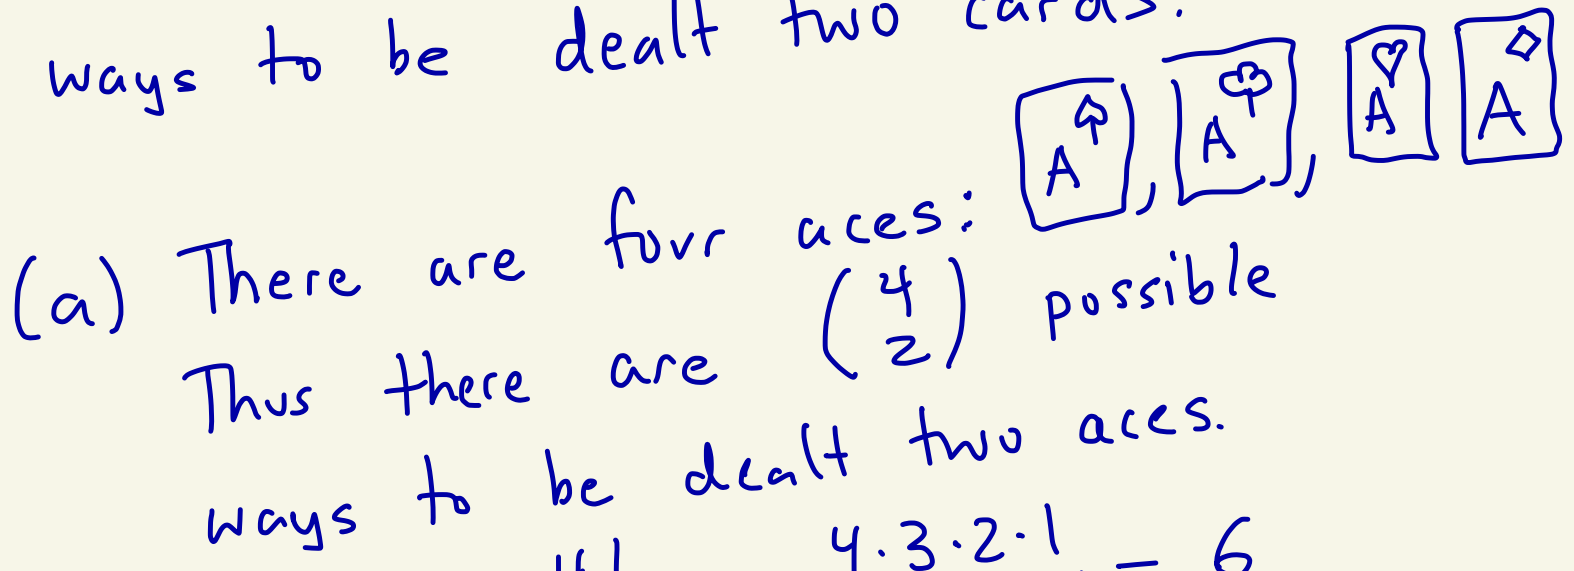 ways to be dealt two cards.
(a) There are four aces: A♤, A♧, A♡ A♢
Thus there are (4 2) possible
ways to be dealt two aces.
4·3·2·1 = 6